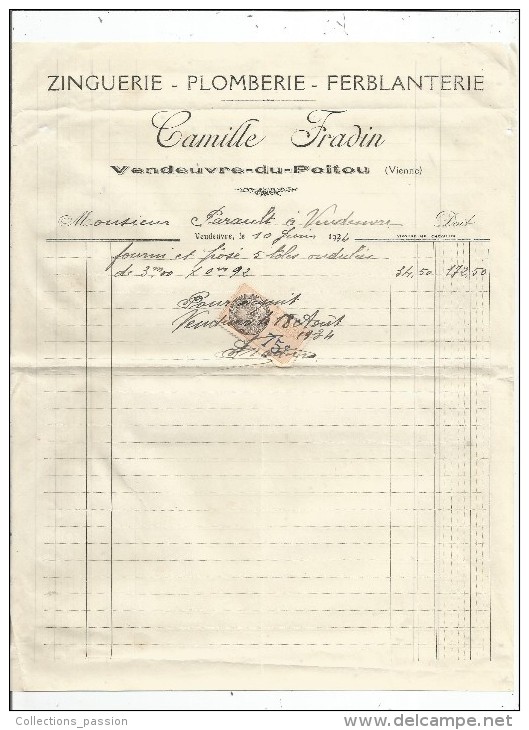 ZINGUERIE - PLOMBERIE - FERBLANTERIE
Camille Fradin
Vendeuvre-du-Poitou (Vienne)
Monsieur Farault à Vendeuvre Doit
Vendeuvre, le 10 Juin 1934
fourni et posé 5 tôles ondulées
de 3m00 x 0m92 34,50 172,50
Pour acquit
Vendeuvre le 18 Août
1934
75c
Fradin
Collections_passion
delcampe.net